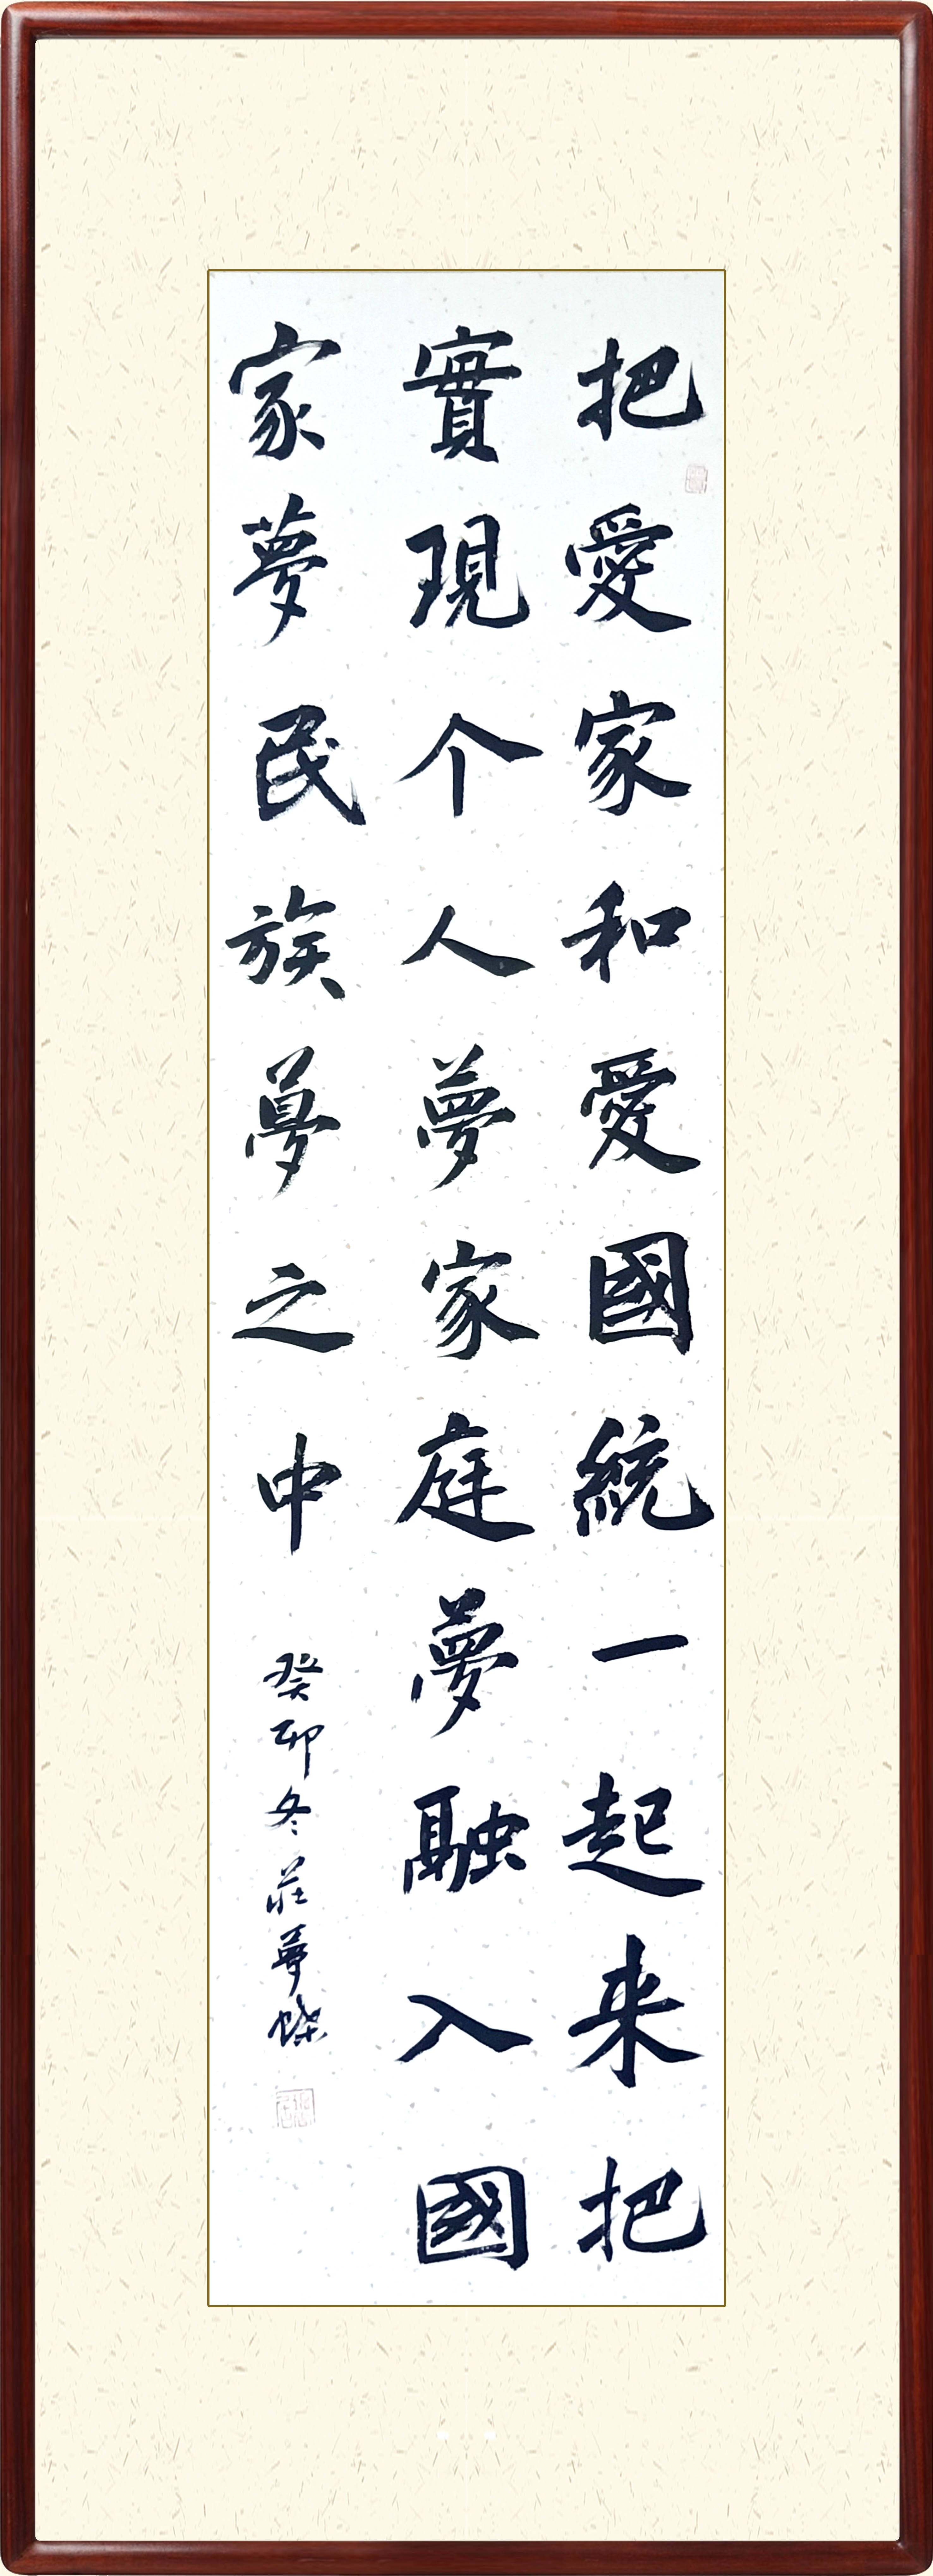 把愛家和愛國統一起来把
實現个人夢家庭夢融入國
家夢民族夢之中
癸卯冬莊夢蝶